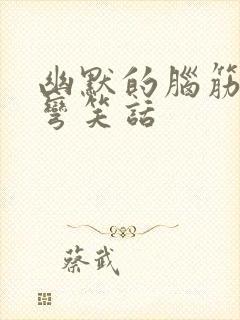 幽默的腦筋
彎笑話
蔡武